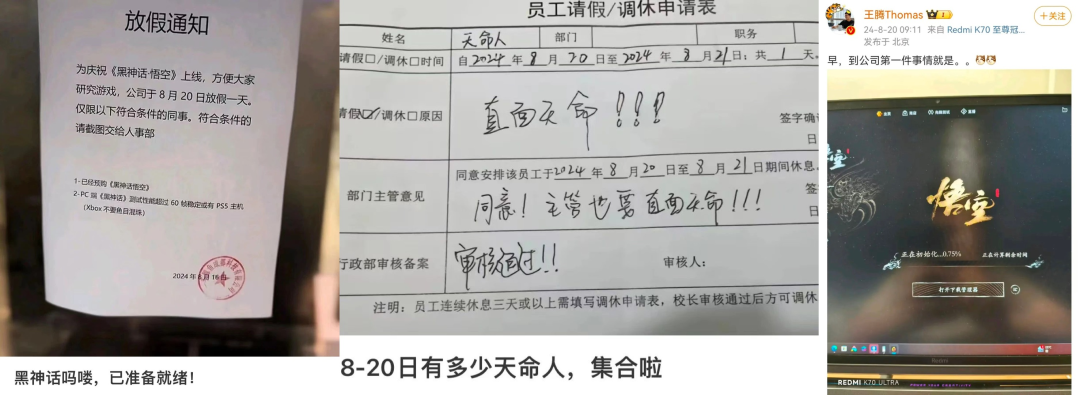 放假通知
为庆祝《黑神话·悟空》上线，方便大家
研究游戏，公司于8月20日放假一天。
仅限以下符合条件的同事。符合条件的
请截图交给人事部
1-已经预购《黑神话·悟空》
2-PC端《黑神话》测试性能超过60帧稳定或有PS5主机
（Xbox不要鱼目混珠）
2024年8月16日
黑神话吗喽，已准备就绪！
员工请假/调休申请表
姓名
天命人
部门
职务
请假□/调休□时间
自2024年8月20日至2024年8月21日；共1天。
请假☑/调休□原因
直面天命！！！
签字确
日
部门主管意见
同意安排该员工于2024年8月20日至8月21日期间休息
同意！主管也要直面天命！！！
签
日
行政部审核备案
审核通过！！
审核人：
注明：员工连续休息三天或以上需填写调休申请表，校长审核通过后方可调休
8-20日有多少天命人，集合啦
王腾Thomas
+关注
24-8-20 09:11 来自 Redmi K70 至尊冠...
发布于 北京
早，到公司第一件事情就是。。
悟空
正在初始化...0.75%
正在计算剩余时间
打开下载管理器
Redmi
REDMI K70 ULTRA